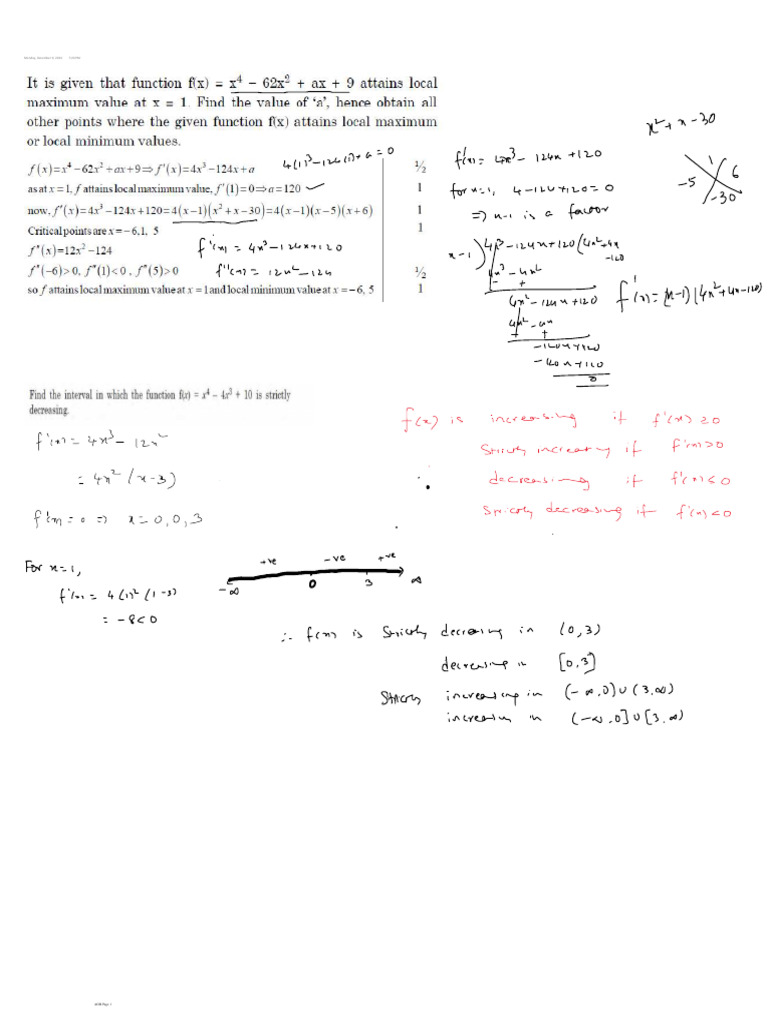 It is given that function f(x) = x⁴ – 62x² + ax + 9 attains local
maximum value at x = 1. Find the value of ‘a’, hence obtain all
other points where the given function f(x) attains local maximum
or local minimum values.
4(1)³-124(1)+a=0
f(x)=x⁴−62x²+ax+9⇒f'(x)=4x³−124x+a ½
as at x=1, f attains local maximum value, f'(1)=0⇒a=120 ✓ 1
now, f'(x)=4x³−124x+120=4(x−1)(x²+x−30)=4(x−1)(x−5)(x+6) 1
Critical points are x=−6,1, 5 1
f''(x)=12x²−124
f''(−6)>0, f''(1)<0, f''(5)>0 ½
so f attains local maximum value at x=1 and local minimum value at x=−6, 5 1
f'(x) = 4x³-124x+120
f''(x) = 12x²-124
f'(x) = 4x³-124x+120
for x=1, 4-124+120=0
=> x-1 is a factor
x-1 ) 4x³-124x+120 ( 4x²+4x
-120
4x³-4x²
- +
4x²-124x+120
4x²-4x
- +
-120x+120
-120x+120
0
x²+x-30
1
-5 6
-30
f'(x) = (x-1)(4x²+4x-120)
Find the interval in which the function f(x) = x⁴ – 4x³ + 10 is strictly
decreasing.
f'(x) = 4x³-12x²
= 4x²(x-3)
f'(x)=0 => x=0,0,3
f(x) is increasing if f'(x)≥0
Strictly increasing if f'(x)>0
decreasing if f'(x)≤0
Strictly decreasing if f'(x)<0
For x=1,
f'(x) = 4(1)²(1-3)
= -8<0
+ve -ve +ve
-∞ 0 3 ∞
∴ f(x) is Strictly decreasing in (0,3)
decreasing in [0,3]
Strictly increasing in (-∞,0)∪(3,∞)
increasing in (-∞,0]∪[3,∞)